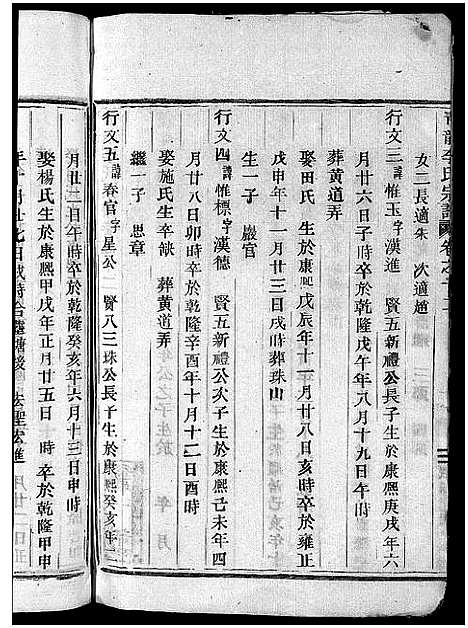 李氏宗譜
女二長適朱 次適趙
行文三諱惟玉字漢進 賢五新禮公長子生於康熙庚戌年六
月廿六日子時卒於乾隆戊午年八月十九日午時
葬黄道弄
娶田氏 生於康熙戊辰年十一月廿八日亥時卒於雍正
戊申年十一月廿三日戌時葬珠山
生一子 巖官
行文四諱惟標字漢德 賢五新禮公次子生於康熙己未年四
月廿八日卯時卒於乾隆辛酉年十月十二日酉時
娶施氏生卒缺 葬黄道弄
繼一子 思章
行文五諱春官字星公 賢八三珠公長子生於康熙癸亥年二
月廿二日午時卒於乾隆癸亥年六月十三日申時
娶楊氏生於康熙甲戌年正月廿五日 時卒於乾隆甲申